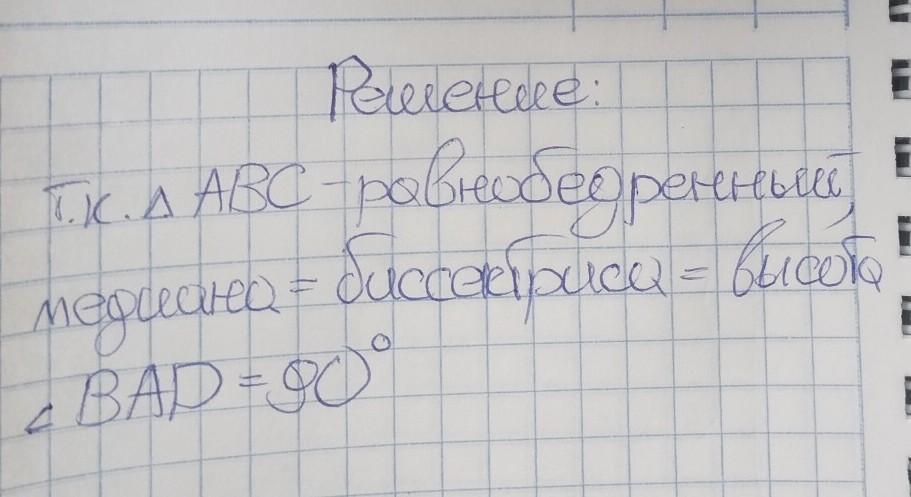 Решение:
Т.к. △ ABC - равнобедренный,
медиана = биссектриса = высота
∠ BAD = 90°